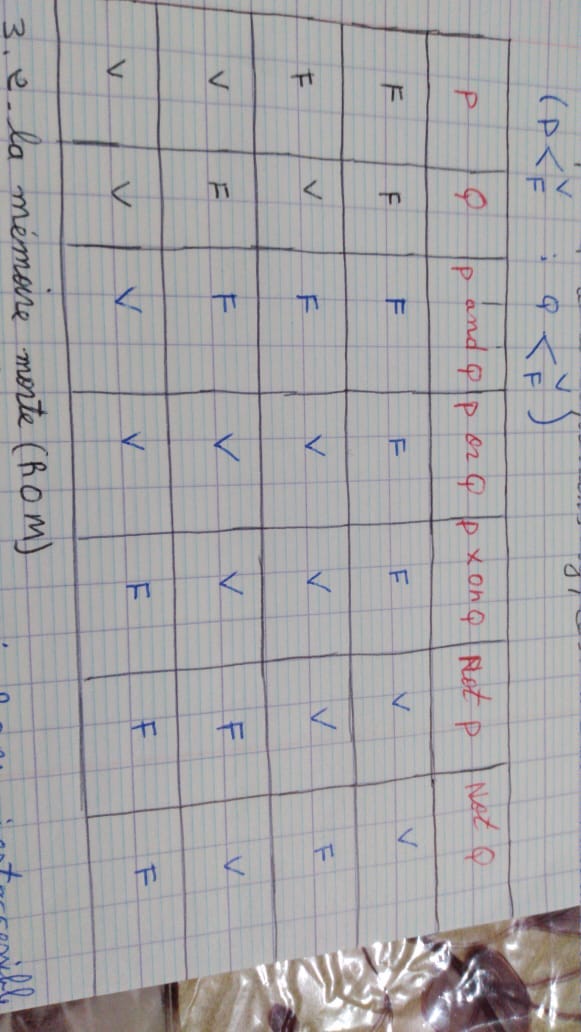 (P < V F : Q < V F)
P Q P and Q P or Q P xor Q Not P Not Q
F F F F F V V
F V F V V V F
V F F V V F V
V V V V F F F
3.2. la mémoire morte (ROM)